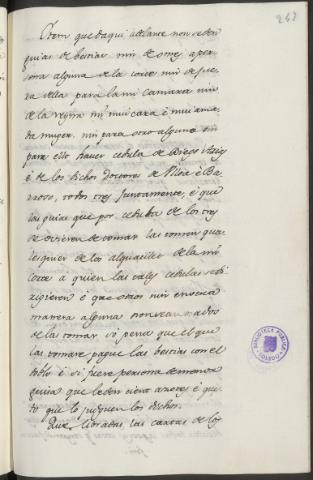 247
Otrosi que daqui adelante non se den
guias de bestias nin de omes a per
sona alguna de la corte nin de fue
ra della para la mi camara nin
de la regina mi muy cara é muy ama
da muger nin para otro alguno sin
para ello haver cedula de Diego
é de los dichos doctores de é Ba
rroso, todos tres juntamente, é que
las guias que por cedulas de los tres
se ovieren de tomar las tomen quales
quier de los alguaciles de la mi
Corte a quien las tales cedulas se di
rigieren é que otros nin en otra
manera alguna non sean osados
de las tomar só pena que el que
las tomare pague las bestias con el
doblo é si fuere persona de menor
guisa que le den cient azotes é que
to que lo juzguen los dichos.
Que libradas las cartas de los
BIBLIOTECA PUBLICA
TOLEDO